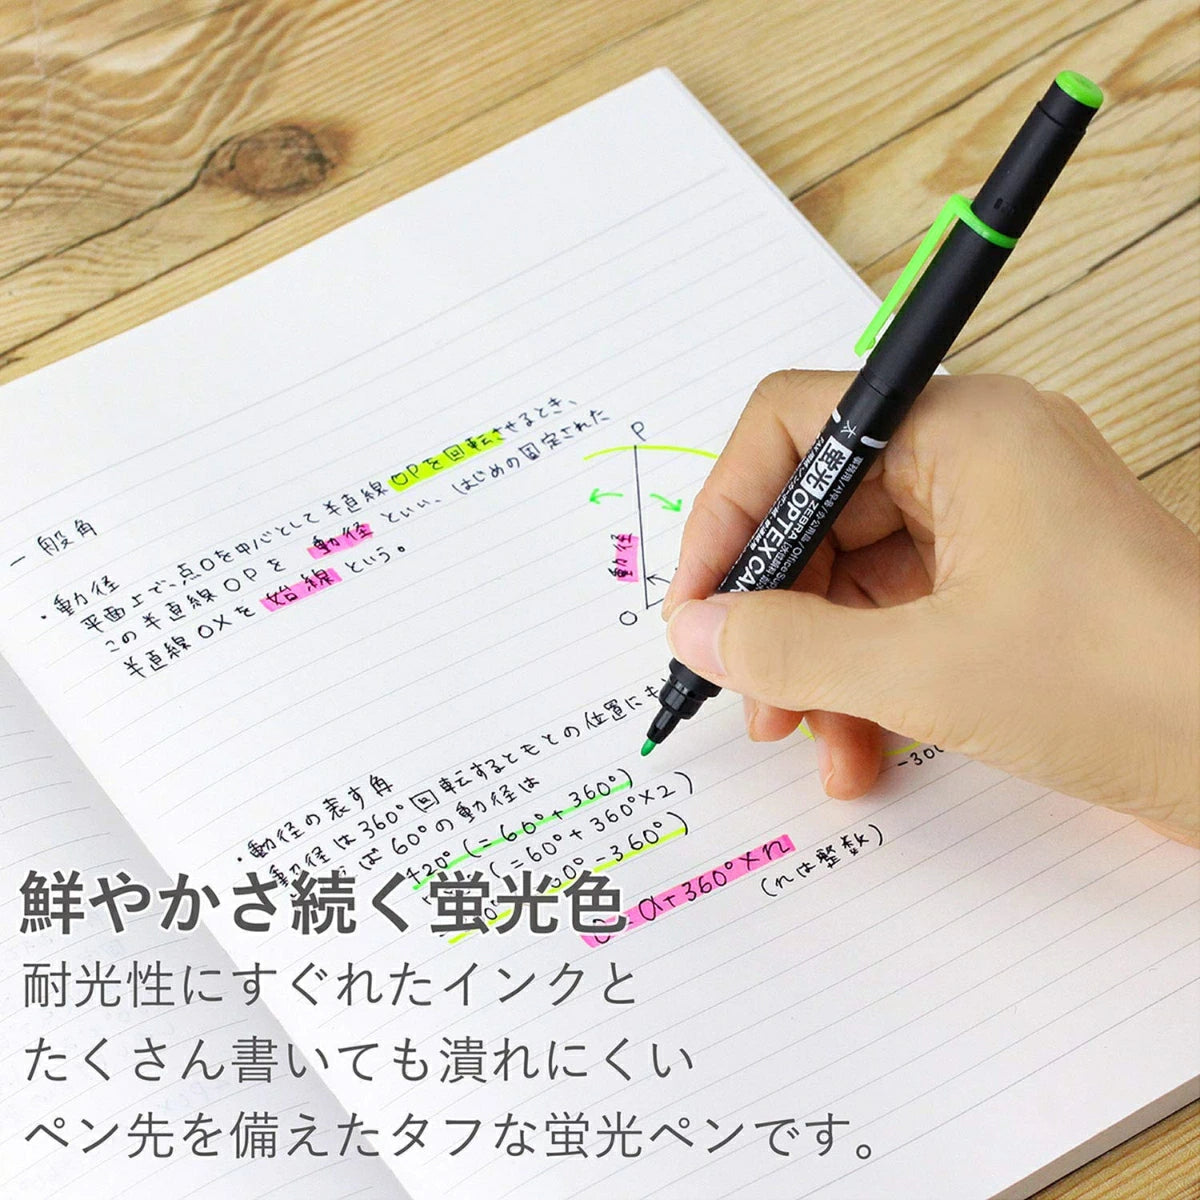 一般角
・動径
平面上で、点Oを中心として半直線OPを回転させるとき、
この半直線OPを動径といい、はじめの固定された
半直線OXを始線という。
P
動径
O
・動径の表す角
動径は360°回転するともとの位置にも
ば60°の動径は
420°(=60°+360°)
(=60°+360°×2)
0°-360°)
-300
=α+360°×n
(nは整数)
太
蛍光
ZEBRA
OPTEX CAR
事務用/사무용/办公用品/Office Sup
鮮やかさ続く蛍光色
耐光性にすぐれたインクと
たくさん書いても潰れにくい
ペン先を備えたタフな蛍光ペンです。